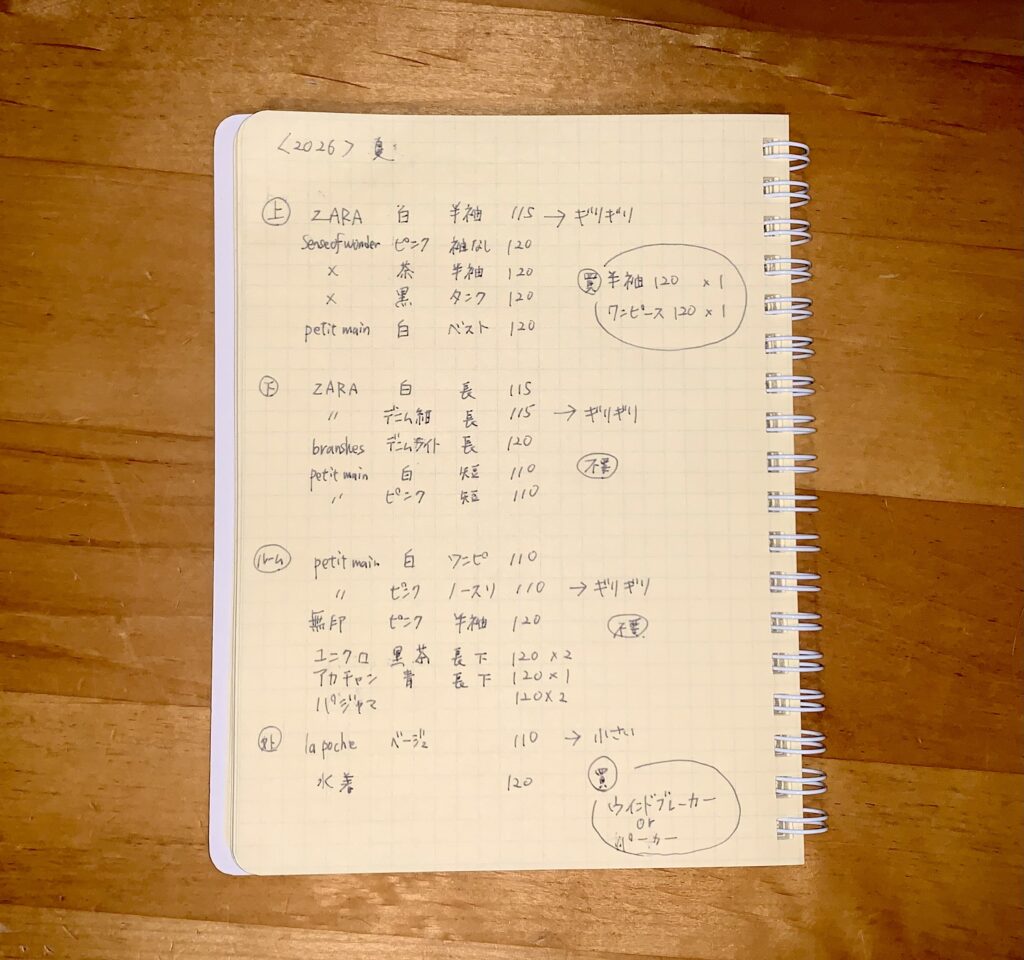 <2026> 夏
上 ZARA 白 半袖 115 → ギリギリ
Sense of wonder ピンク 袖なし 120
× 茶 半袖 120
× 黒 タンク 120
買 半袖 120 × 1
ワンピース 120 × 1
petit main 白 ベスト 120
下 ZARA 白 長 115
〃 デニム紺 長 115 → ギリギリ
branshes デニムライト 長 120
petit main 白 短 110
不要
〃 ピンク 短 110
ルーム petit main 白 ワンピ 110
〃 ピンク ノースリ 110 → ギリギリ
無印 ピンク 半袖 120
不要
ユニクロ 黒 茶 長下 120 × 2
アカチャン 青 長下 120 × 1
パジャマ 120 × 2
外 la poche ベージュ 110 → 小さい
水着 120
買
ウインドブレーカー
or
パーカー